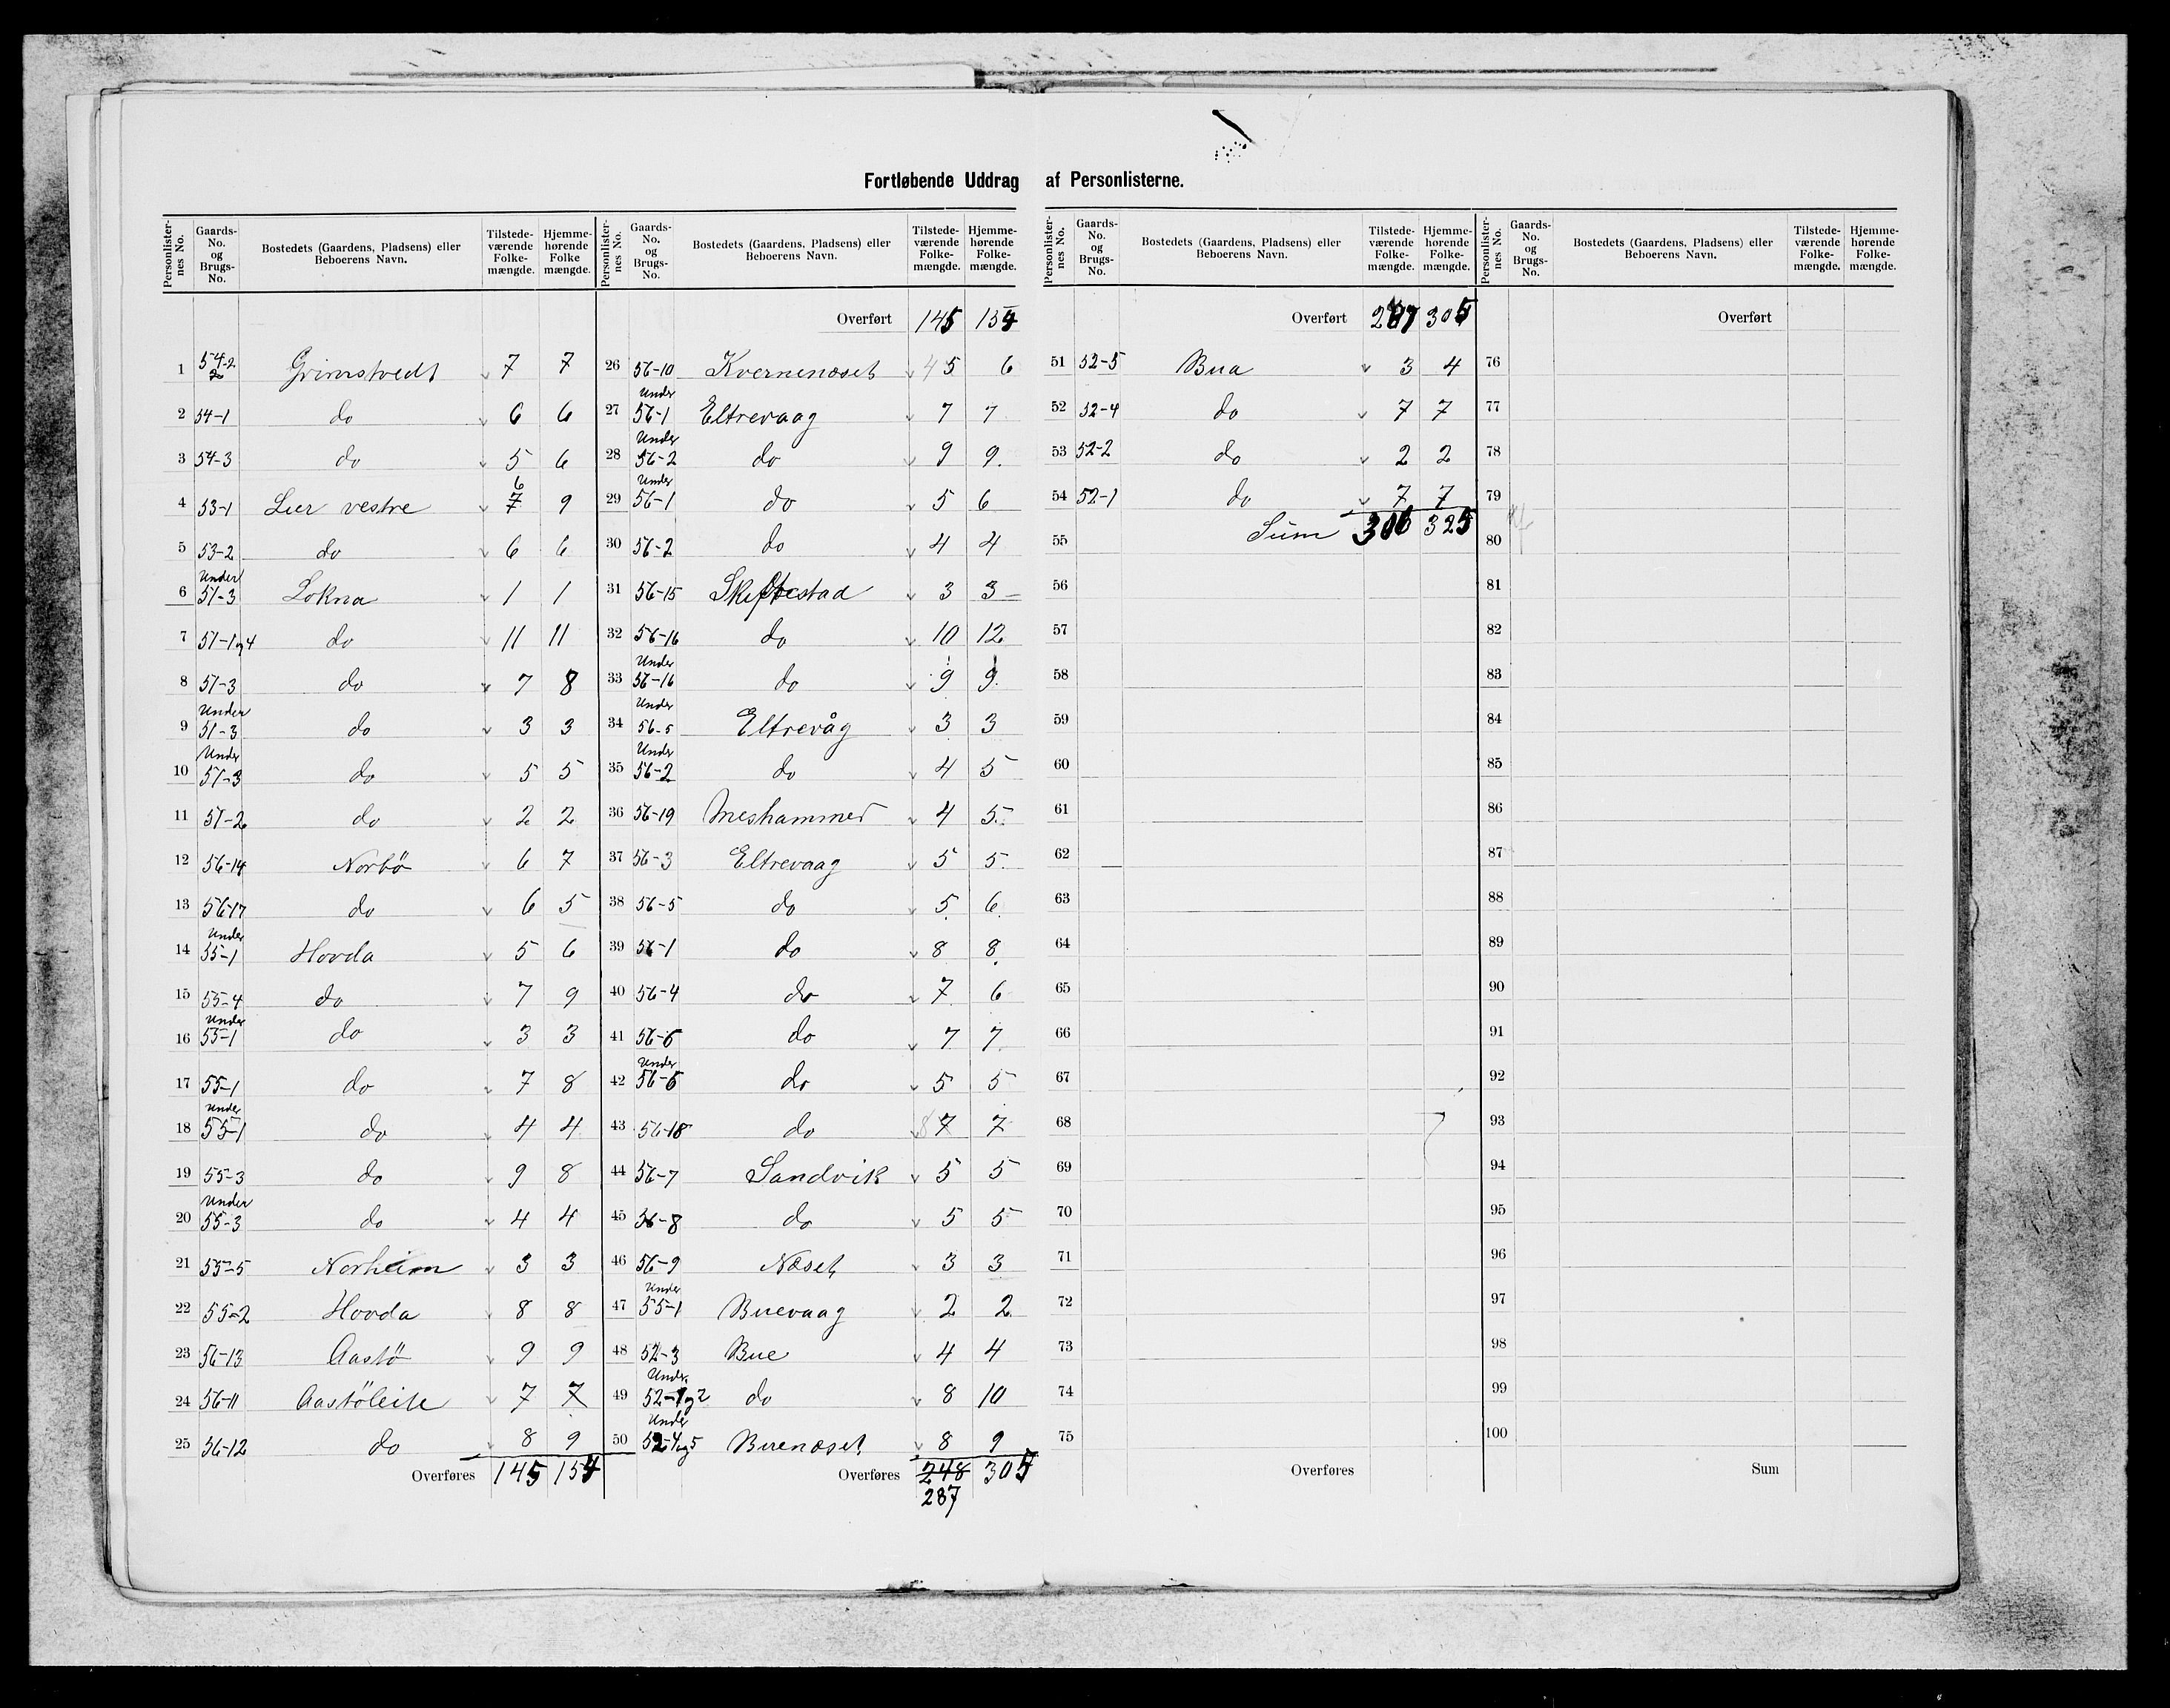 Fortløbende Uddrag af Personlisterne.
Personlister-nes No. | Gaards-No. og Brugs-No. | Bostedets (Gaardens, Pladsens) eller Beboerens Navn. | Tilstede-værende Folke-mængde. | Hjemme-hørende Folke mængde.
1 54-2 Grimstvedt 7 7
2 54-1 do 6 6
3 54-3 do 5 6
4 53-1 Lier vestre 6 7 9
5 53-2 do 6 6
6 Under 51-3 Lokna 1 1
7 51-1og4 do 11 11
8 51-3 do 7 8
9 Under 51-3 do 3 3
10 Under 51-3 do 5 5
11 51-2 do 2 2
12 56-14 Norbö 6 7
13 56-17 do 6 5
14 Under 55-1 Hovda 5 6
15 55-4 do 7 9
16 Under 55-1 do 3 3
17 55-1 do 7 8
18 Under 55-1 do 4 4
19 55-3 do 9 8
20 Under 55-3 do 4 4
21 55-5 Norheim 3 3
22 55-2 Hovda 8 8
23 56-13 Aastö 9 9
24 56-11 Aastöleite 7 7
25 56-12 do 8 9
Overføres 145 154
Personlister-nes No. | Gaards-No. og Brugs-No. | Bostedets (Gaardens, Pladsens) eller Beboerens Navn. | Tilstede-værende Folke-mængde. | Hjemme-hørende Folke-mængde.
Overført 145 154
26 56-10 Kvernenæset 4 5 6
27 Under 56-1 Eltrevaag 7 7
28 Under 56-2 do 9 9.
29 Under 56-1 do 5 6
30 56-2 do 4 4
31 56-15 Skiftestad 3 3
32 56-16 do 10 12
33 Under 56-16 do 9 9
34 Under 56-5 Eltrevåg 3 3
35 Under 56-2 do 4 5
36 56-19 Meshammer 4 5
37 56-3 Eltrevaag 5 5
38 56-5 do 5 6
39 56-1 do 8 8
40 56-4 do 7 6
41 56-6 do 7 7
42 Under 56-6 do 5 5
43 56-18 do 8 7 7
44 56-7 Sandvik 5 5
45 56-8 do 5 5
46 56-9 Næset 3 3
47 Under 55-1 Buevaag 2 2
48 52-3 Bue 4 4
49 Under 52-1og2 do 8 10
50 Under 52-4og5 Buenæset 8 9
Overføres 248 305
287
Personlister-nes No. | Gaards-No. og Brugs-No. | Bostedets (Gaardens, Pladsens) eller Beboerens Navn. | Tilstede-værende Folke-mængde. | Hjemme-hørende Folke-mængde.
Overført 287 305
51 52-5 Bua 3 4
52 52-4 do 7 7
53 52-2 do 2 2
54 52-1 do 7 7
55 Sum 306 325
56
57
58
59
60
61
62
63
64
65
66
67
68
69
70
71
72
73
74
75
Overføres
Personlister-nes No. | Gaards-No. og Brugs-No. | Bostedets (Gaardens, Pladsens) eller Beboerens Navn. | Tilstede-værende Folke-mængde. | Hjemme-hørende Folke-mængde.
Overført
76
77
78
79
80
81
82
83
84
85
86
87
88
89
90
91
92
93
94
95
96
97
98
99
100
Sum